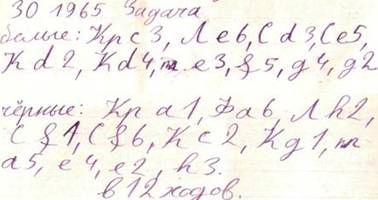 30 1965 Задача
белые: Кр с3, Л е6, С d3, С е5,
К d2, К d4, п. е3, f5, g4, g2
чёрные: Кр а1, Ф а6, Л h2,
С f1, С f6, К с2, К g1, пп
а5, е4, е2, h3.
в 12 ходов.